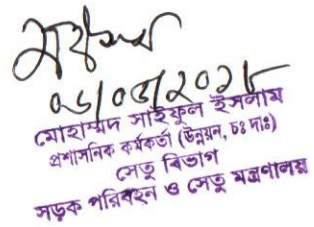 মোহাম্মদ সাইফুল ইসলাম
প্রশাসনিক কর্মকর্তা (উন্নয়ন, চঃ দাঃ)
সেতু বিভাগ
সড়ক পরিবহন ও সেতু মন্ত্রণালয়